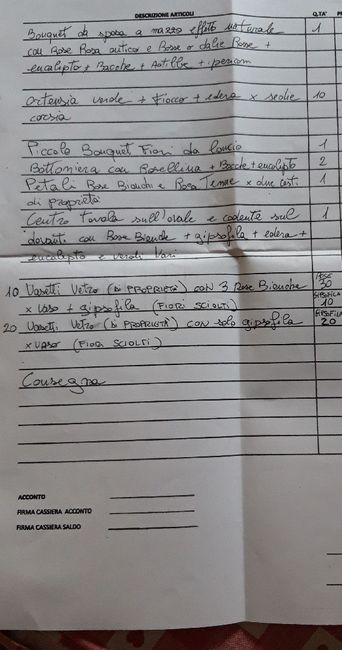 DESCRIZIONE ARTICOLI Q.TA'
Bouquet da sposa a mazzo effetto naturale 1
con Rose Rosa antico e Rosse o dalie Rosse +
eucalipto + Bacche + Astilbe + ipericom
ortensia verde + fiocco + edera x sedie 10
corsia
Piccolo Bouquet Fiori da lancio 1
Bottoniera con Rosellina + Bacche + eucalipto 2
Petali Rose Bianchi e Rosa Tenue x due cesti 1
di proprietà
Centro Tavola sull'ovale e cadente sul 1
davanti con Rose Bianche + gipsofila + edera +
eucalipto e verdi vari
10 Vasetti Vetro (DI PROPRIETÀ) CON 3 Rose Bianche ROSE 30
x vaso + gipsofila (FIORI SCIOLTI) GIPSOFILA 10
20 Vasetti Vetro (DI PROPRIETÀ) CON solo gipsofila GIPSOFILA 20
x VASO (FIORI SCIOLTI)
Consegna
ACCONTO
FIRMA CASSIERA ACCONTO
FIRMA CASSIERA SALDO